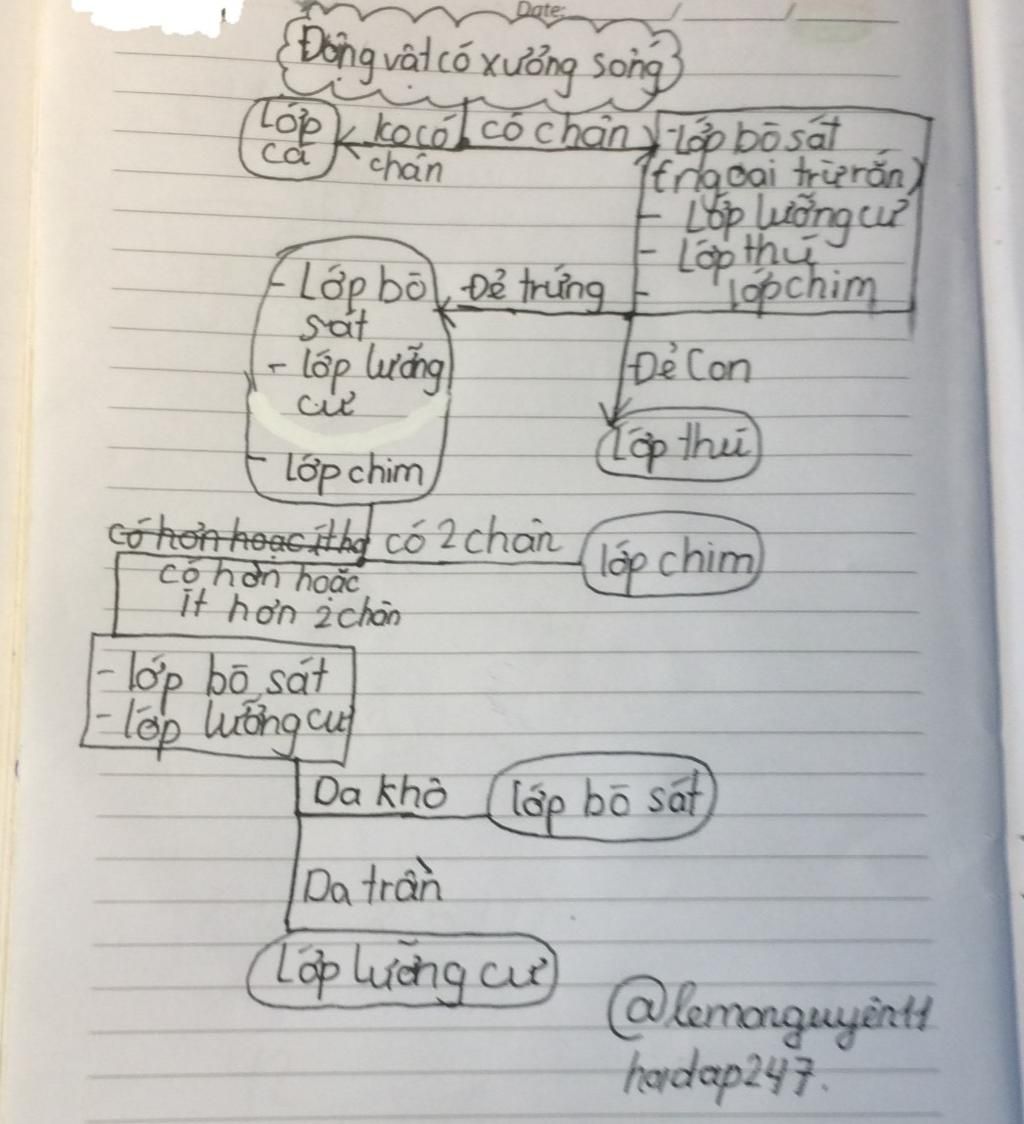 Date:
Động vật có xưởng sống
Lớp
cá
ko có
chân
có chân
- Lớp bò sát
(ngoại trừ rắn)
- Lớp lưỡng cư
- Lớp thú
- lớp chim
Đẻ trứng
- Lớp bò
sát
- lớp lưỡng
cư
- lớp chim
Đẻ Con
Lớp thú
có hơn hoặc ít hơ
có 2 chân
lớp chim
có hơn hoặc
ít hơn 2 chân
- lớp bò sát
- lớp lưỡng cư
Da khô
lớp bò sát
Da trần
Lớp lưỡng cư
@lemonguyen11
hoidap247.